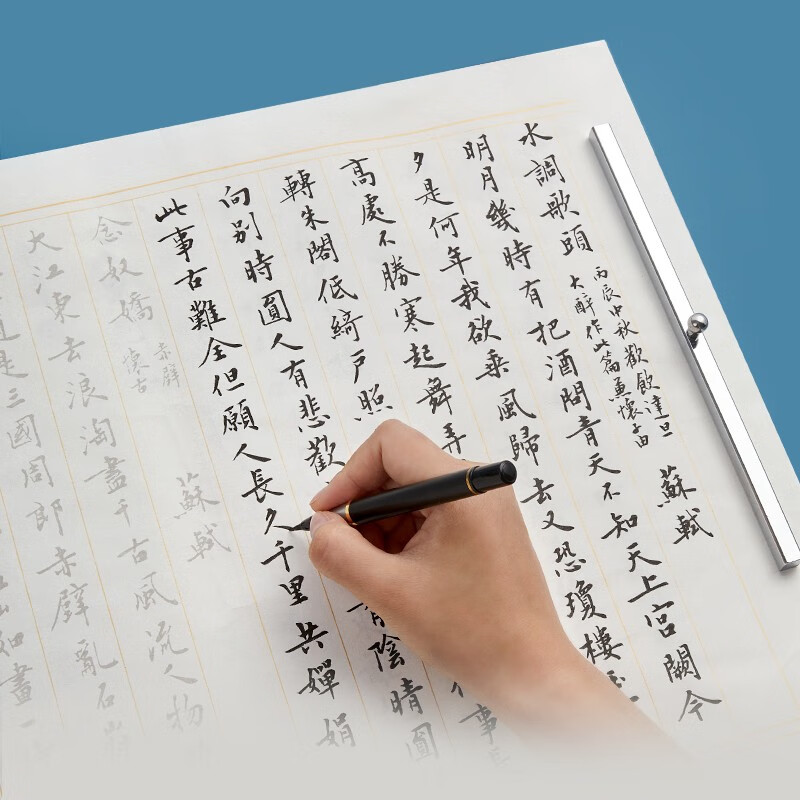 水調歌頭
丙辰中秋歡飲達旦
大醉作此篇兼懷子由
蘇軾
明月幾時有把酒問青天不知天上宮闕今
夕是何年我欲乘風歸去又恐瓊樓玉
高處不勝寒起舞弄
轉朱閣低綺戶照事
向別時圓人有悲歡有陰晴圓
此事古難全但願人長久千里共嬋娟
念奴嬌
赤壁
懷古
蘇軾
大江東去浪淘盡千古風流人物
道是三國周郎赤壁亂石崩
如畫一